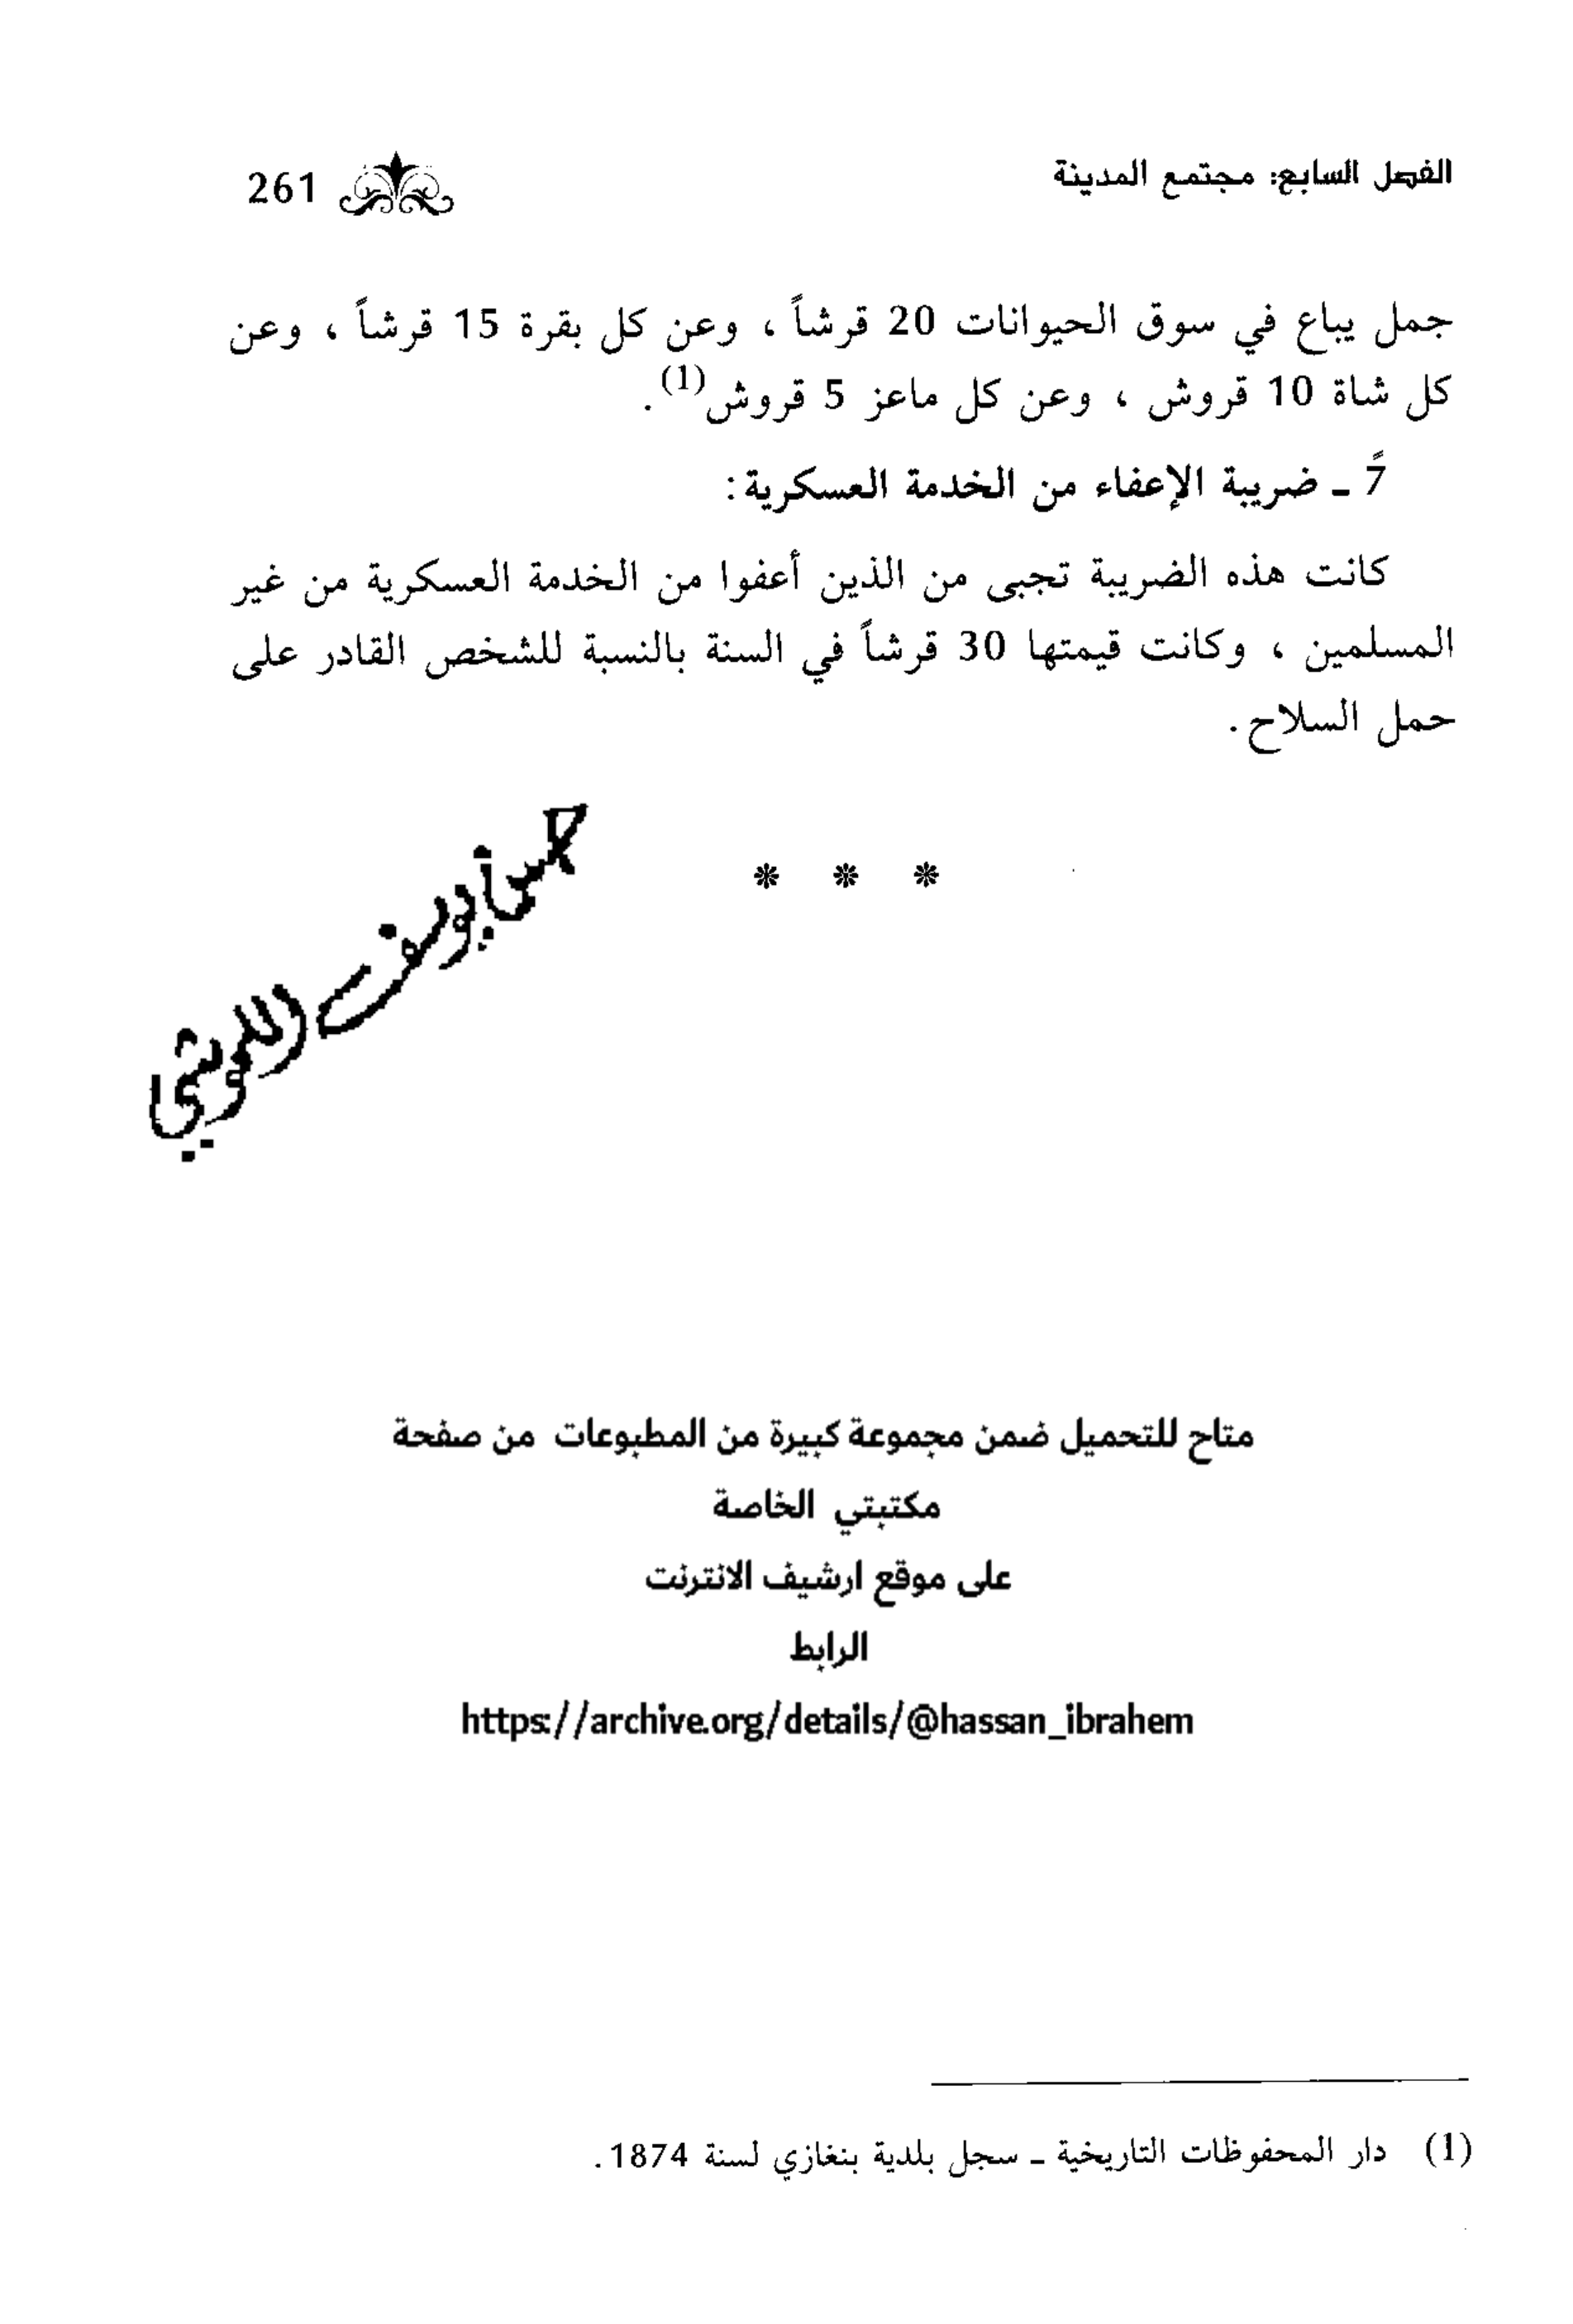 الفصل السابع: مجتمع المدينة 261
جمل يباع في سوق الحيوانات 20 قرشاً ، وعن كل بقرة 15 قرشاً ، وعن
كل شاة 10 قروش ، وعن كل ماعز 5 قروش(1) .
7ً ـ ضريبة الإعفاء من الخدمة العسكرية:
كانت هذه الضريبة تجبى من الذين أعفوا من الخدمة العسكرية من غير
المسلمين ، وكانت قيمتها 30 قرشاً في السنة بالنسبة للشخص القادر على
حمل السلاح .
* * *
متاح للتحميل ضمن مجموعة كبيرة من المطبوعات من صفحة
مكتبتي الخاصة
على موقع ارشيف الانترنت
الرابط
https://archive.org/details/@hassan_ibrahem
(1) دار المحفوظات التاريخية ـ سجل بلدية بنغازي لسنة 1874 .